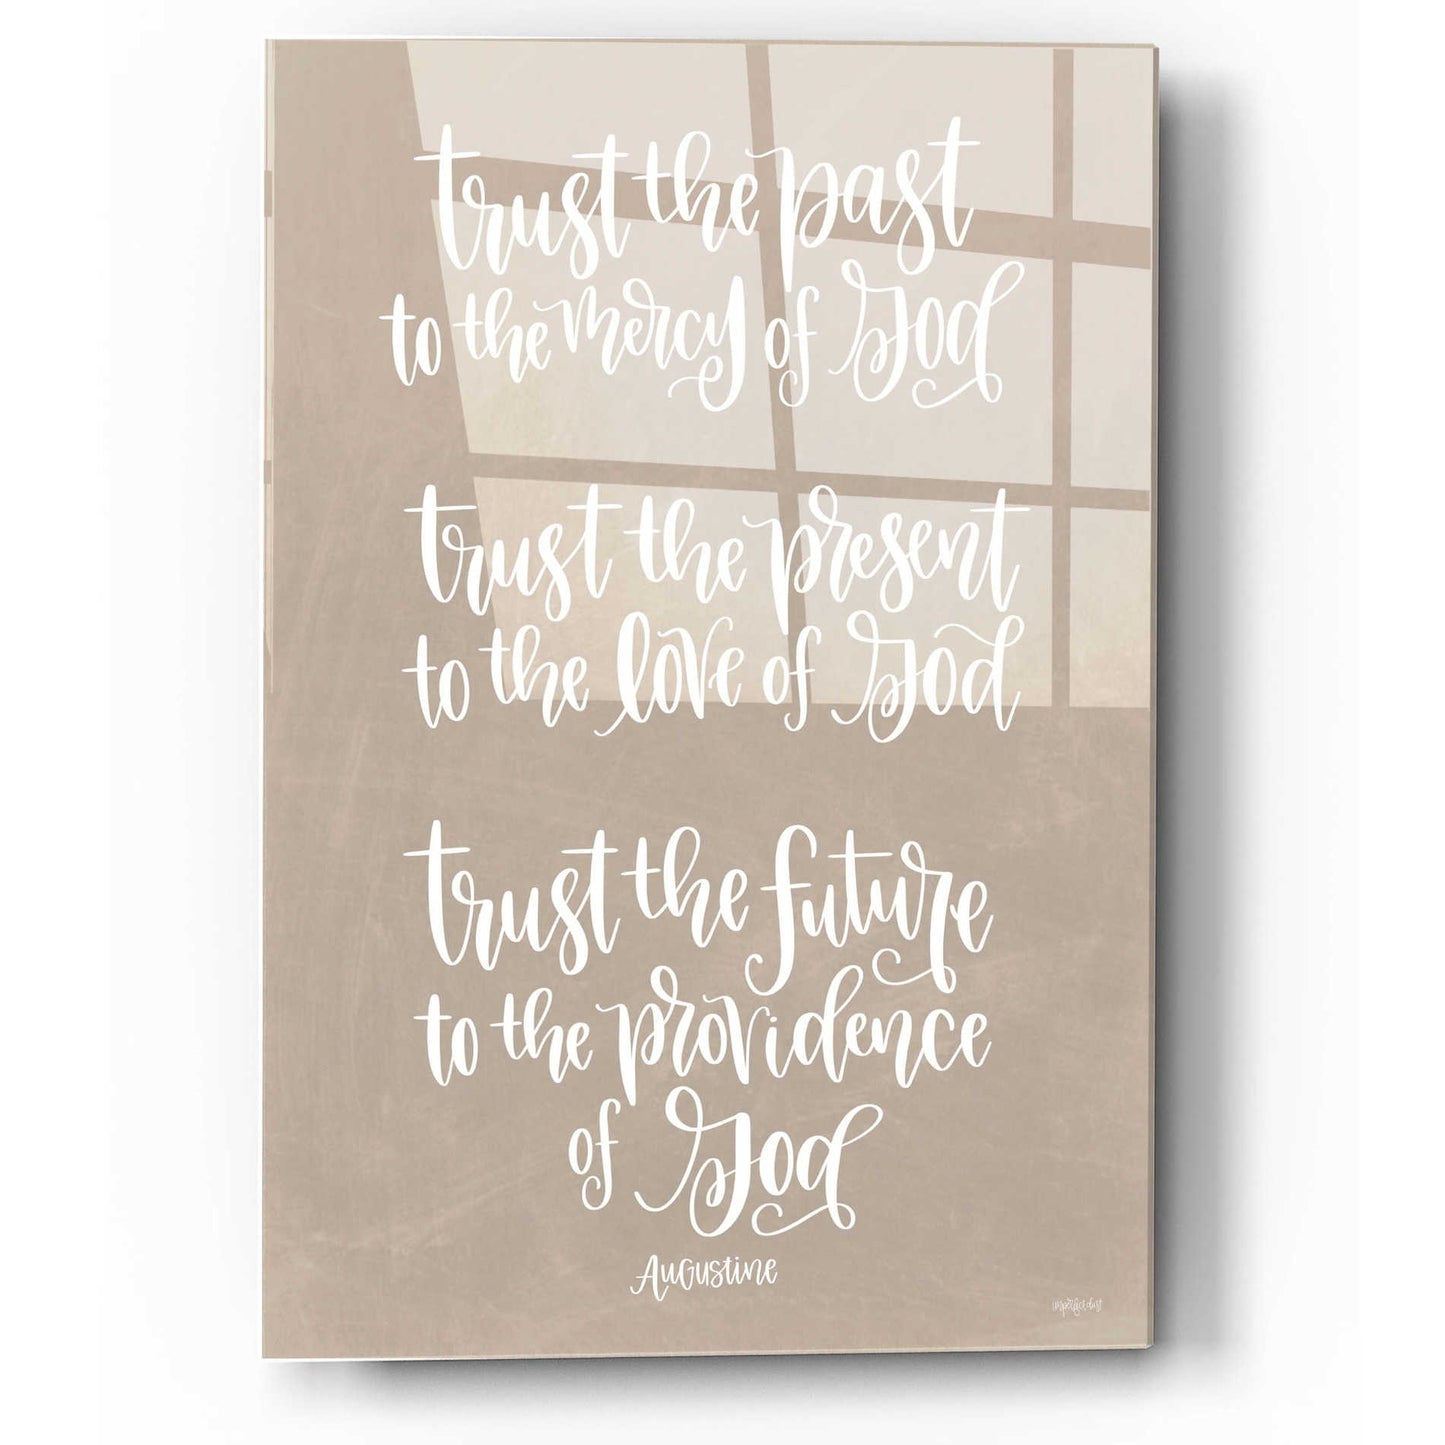 trust the past
to the mercy of God
trust the present
to the love of God
trust the future
to the providence
of God
Augustine
imperfect dust